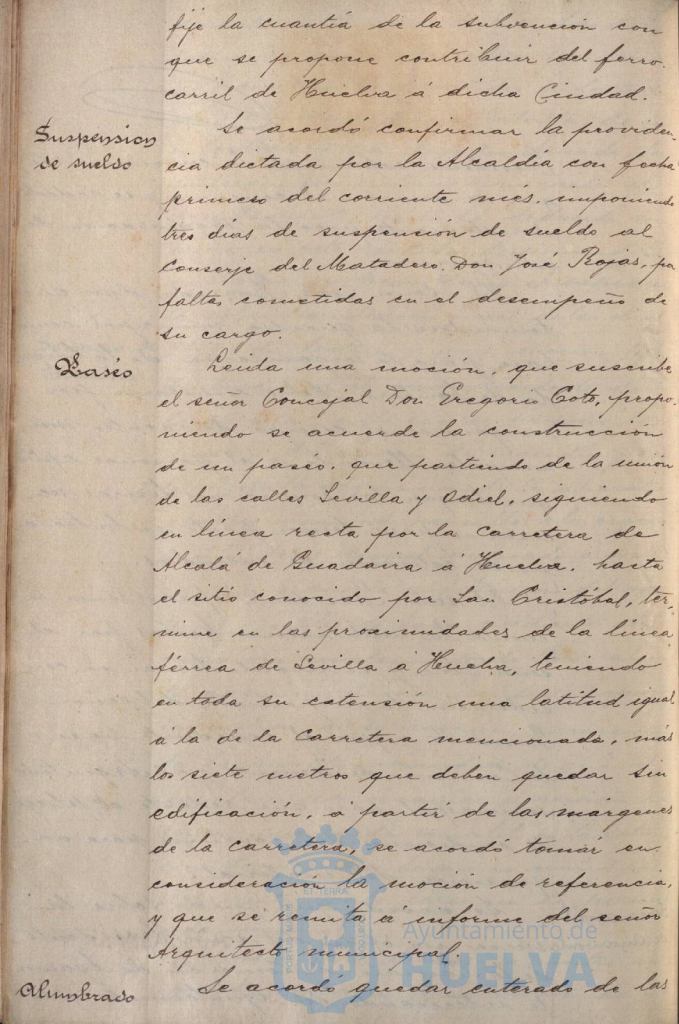 fije la cuantía de la subvención con
que se propone contribuir del ferro-
carril de Huelva á dicha Ciudad.
Suspension
de sueldo
Se acordó confirmar la providen-
cia dictada por la Alcaldía con fecha
primero del corriente més, imponiendo
tres días de suspensión de sueldo al
Conserje del Matadero, Don José Rojas, por
faltas cometidas en el desempeño de
su cargo.
Paséo
Leida una moción, que suscribe
el señor Concejal Don Gregorio Coto, propo-
niendo se acuerde la construcción
de un paséo, que partiendo de la unión
de las calles Sevilla y Odiel, siguiendo
en línea recta por la carretera de
Alcalá de Guadaira á Huelva, hasta
el sitio conocido por San Cristóbal, ter-
mine en las proximidades de la línea
férrea de Sevilla á Huelva, teniendo
en toda su extensión una latitud igual
á la de la carretera mencionada, más
los siete metros que deben quedar sin
edificación, á partir de las márgenes
de la carretera, se acordó tomár en
consideración la moción de referencia,
y que se remita á informe del señor
Arquitecto municipal.
Alumbrado
Se acordó quedar enterado de las
Ayuntamiento de
HUELVA